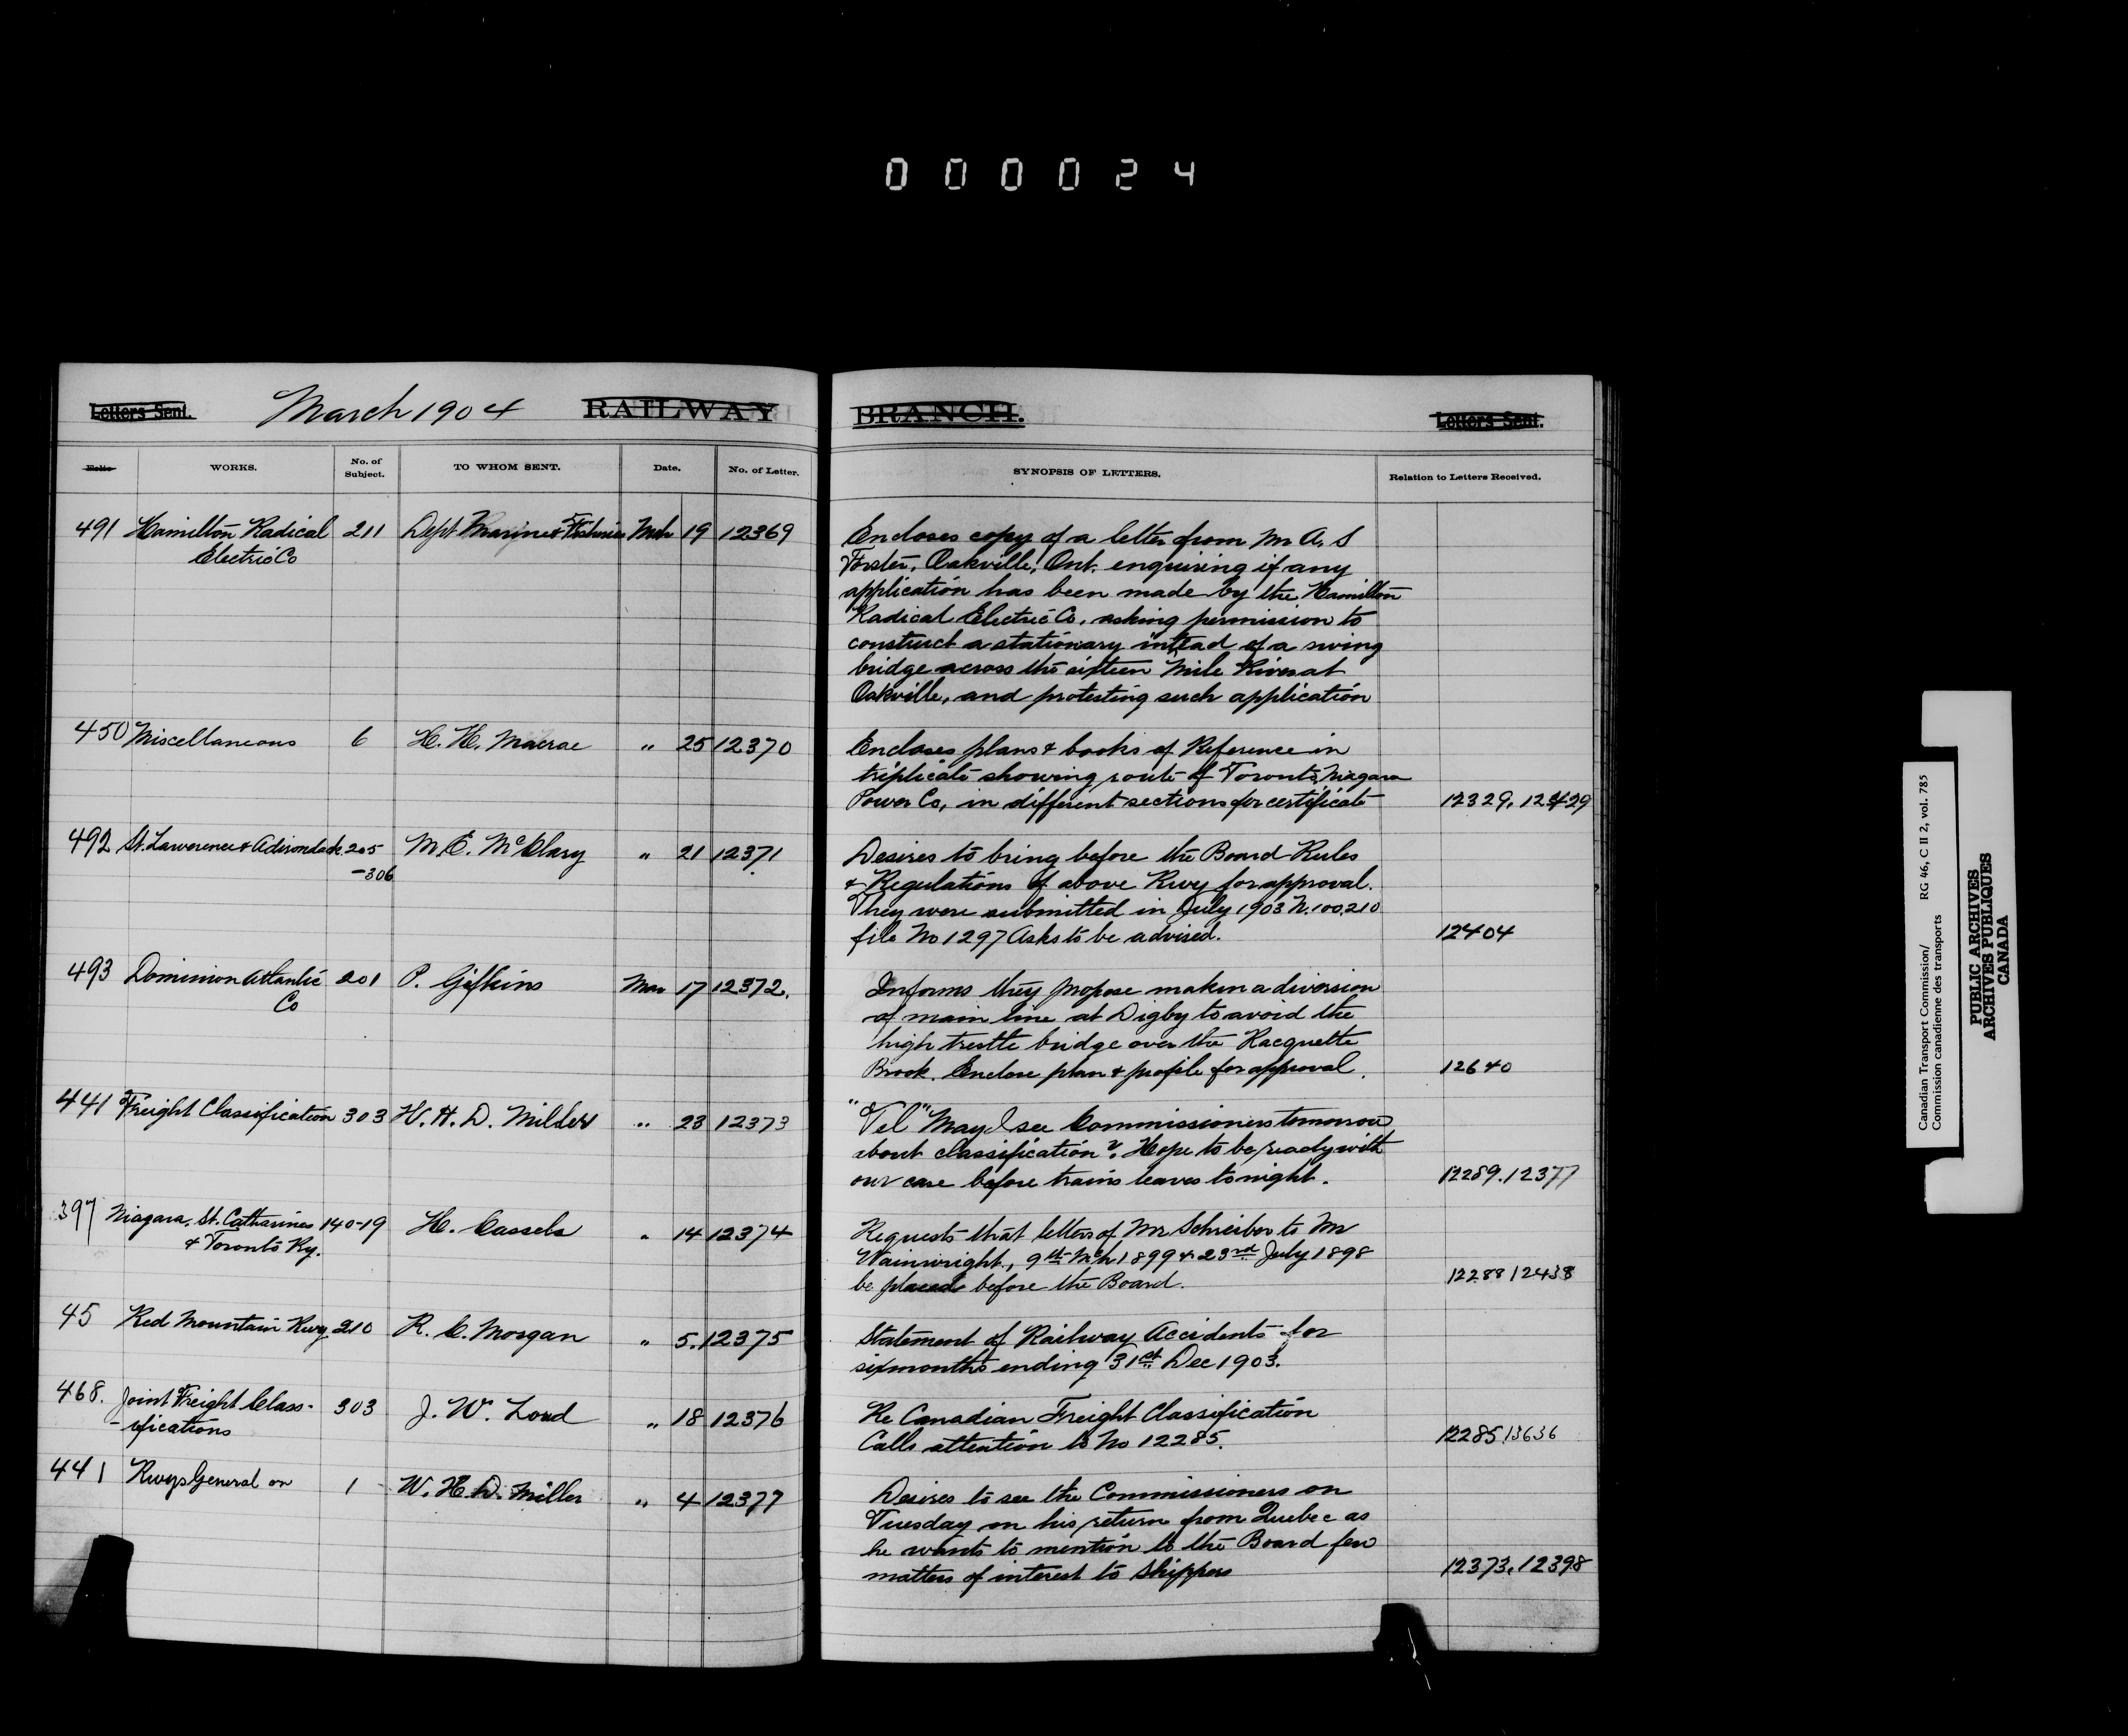 000024
Letters Sent. March 1904 RAILWAY BRANCH. Letters Sent.
Folio WORKS. No. of Subject. TO WHOM SENT. Date. No. of Letter. SYNOPSIS OF LETTERS. Relation to Letters Received.
491 Hamilton Radical 211 Dept Marine & Fisheries Mch 19 12369 Encloses copy of a letter from Mr A. S
Electric Co Forster, Oakville, Ont. enquiring if any
application has been made by the Hamilton
Radical Electric Co. asking permission to
construct a stationary intead of a swing
bridge across the sixteen Mile River at
Oakville, and protesting such application
450 Miscellaneous 6 H. H. Macrae " 25 12370 Encloses plans & books of Reference in
triplicate showing route of Toronto, Niagara
Power Co, in different sections for certificate 12329, 12429
492 St. Lawerence & Adirondack 205 M. E. McClary " 21 12371 Desires to bring before the Board Rules
-306 & Regulations of above Rwy for approval.
They were submitted in July 1903 N. 100,210
file No 1297 Asks to be advised. 12404
493 Dominion Atlantic 201 P. Gifkins Mar 17 12372. Informs they propose makin a diversion
Co of main line at Digby to avoid the
high trestle bridge over the Racquette
Brook. Enclose plan & profile for approval. 12640
441 Freight Classification 303 W. H. D. Milder " 23 12373 "Tel" May I see Commissioners tomorrow
about classification? Hope to be ready with
our case before trains leaves tonight. 12289. 12377
397 Niagara, St. Catharines 140-19 H. Cassels " 14 12374 Requests that letters of Mr Schreiber to Mr
& Toronto Ry. Wainwright, 9th Mch 1899 & 23rd July 1898
be placed before the Board. 12288 12438
45 Red Mountain Rwy. 210 R. C. Morgan " 5. 12375 Statement of Railway Accidents for
six months ending 31st Dec 1903.
468. Joint Freight Class- 303 J. W. Loud " 18 12376 Re Canadian Freight Classification
-ifications Calls attention to No 12285. 12285, 13636
441 Rwys General on 1 W. H. D. Miller " 4 12377 Desires to see the Commissioners on
Tuesday on his return from Quebec as
he wants to mention to the Board few
matters of interest to Shippers 12373, 12398
Canadian Transport Commission/ RG 46, C II 2, vol. 785
Commission canadienne des transports
PUBLIC ARCHIVES
ARCHIVES PUBLIQUES
CANADA